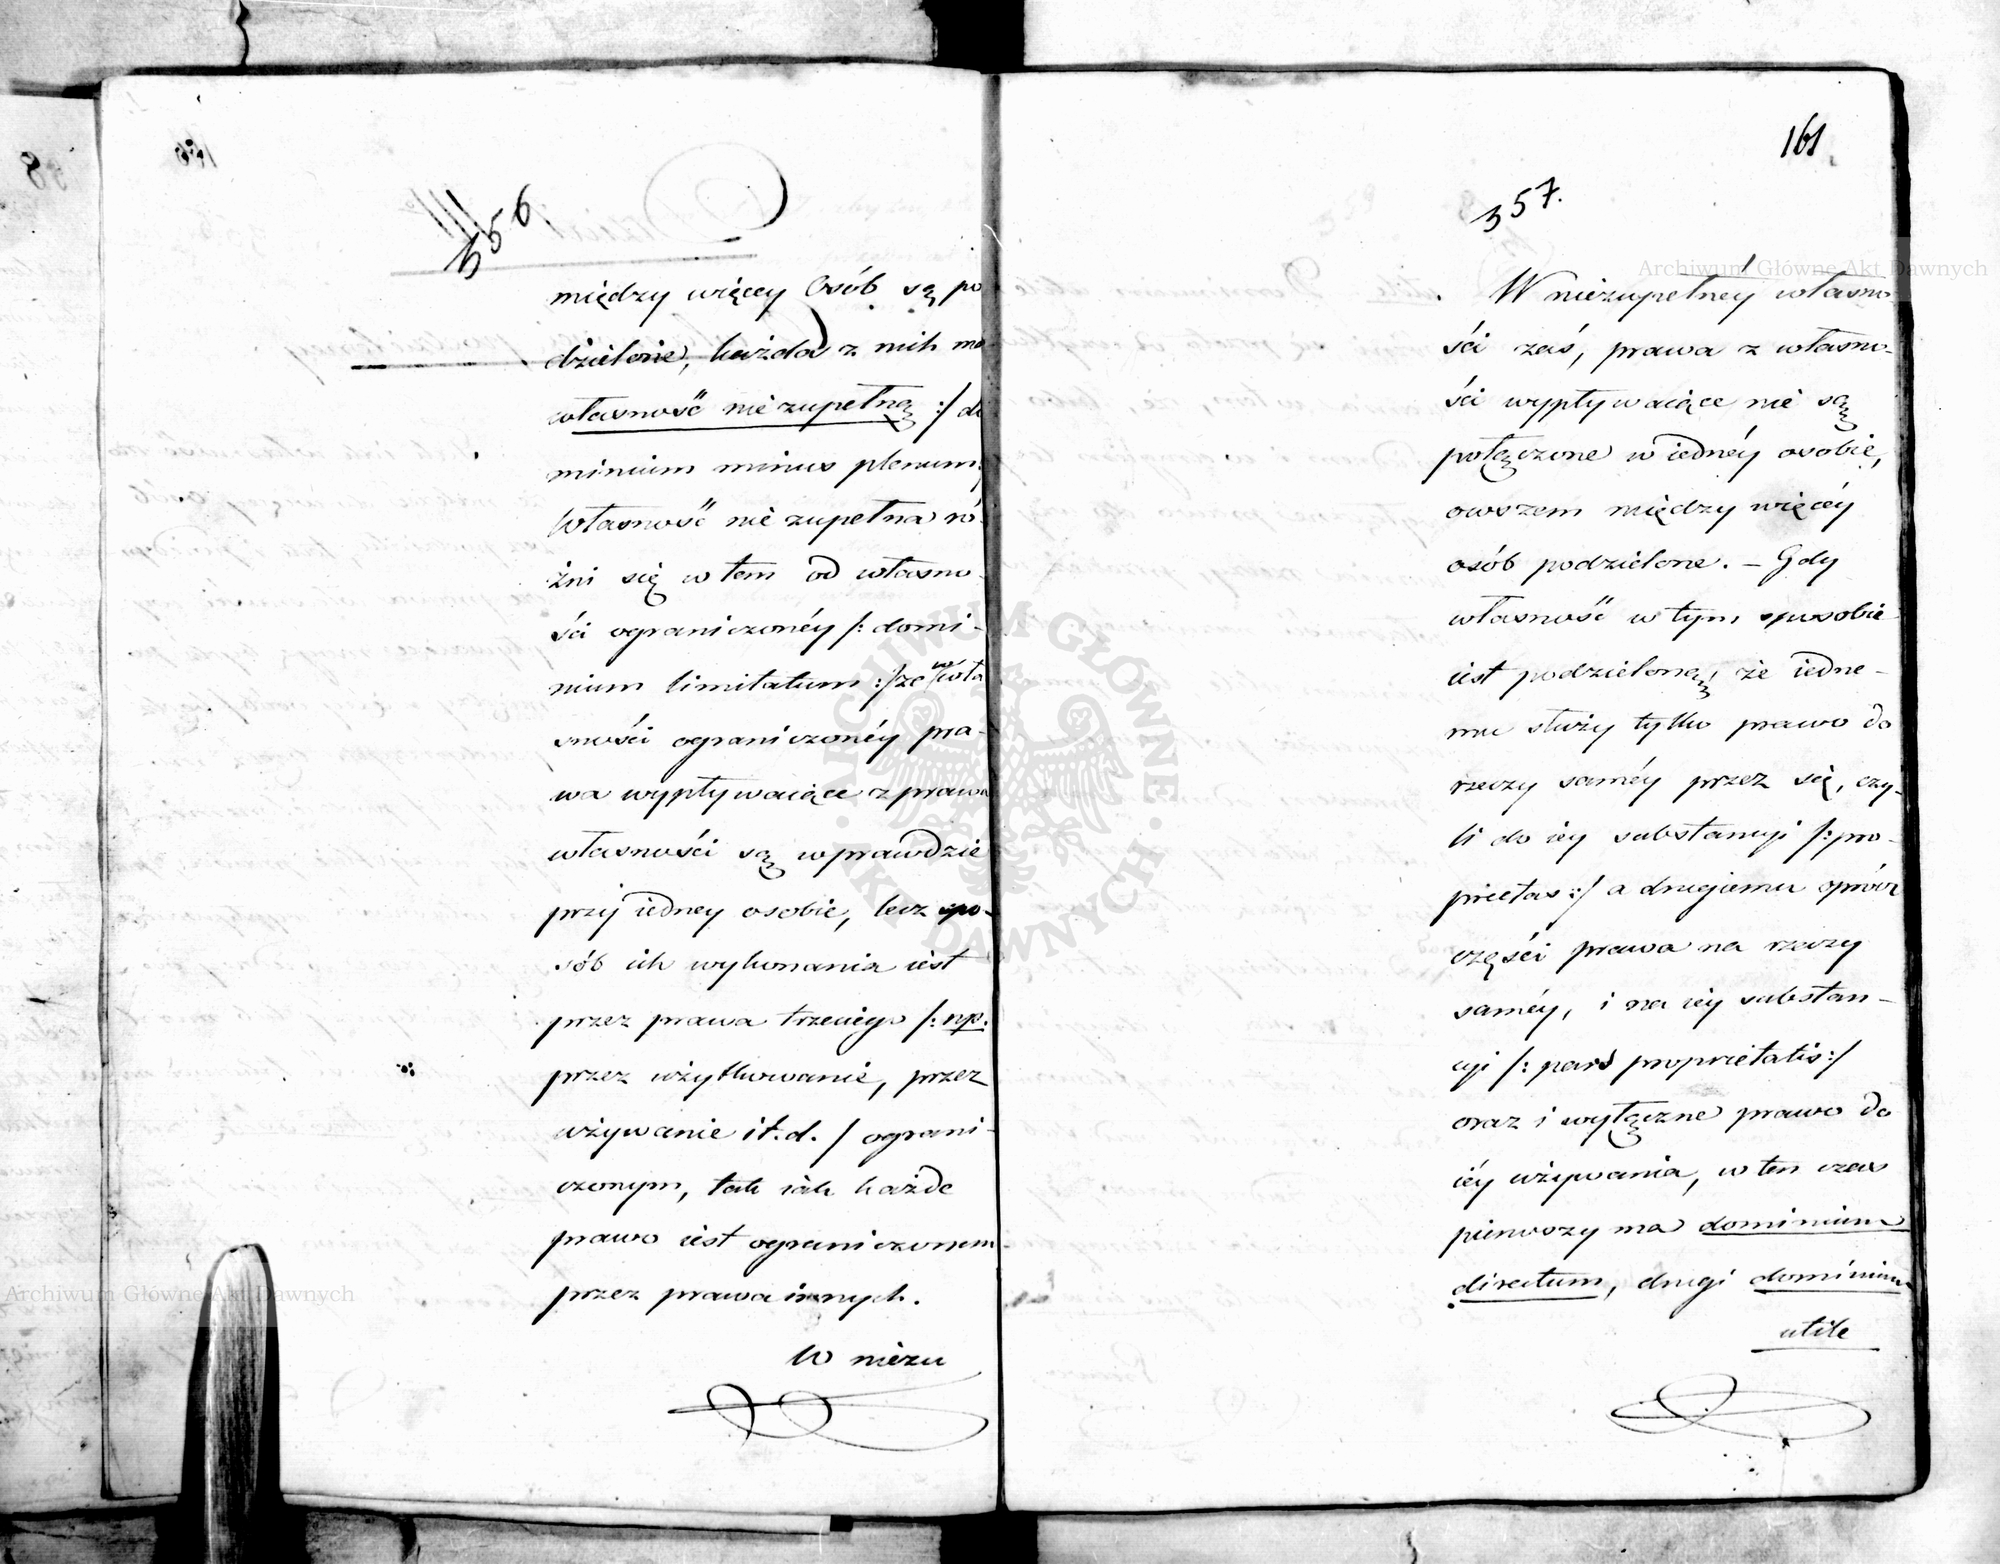 356
między więcey Osób są po
dzielone, każda z nich ma
własność niezupełną :/ do
minium minus plenum:
Własność niezupełna ró-
żni się w tem od własno-
ści ograniczonéy /: domi-
nium limitatum :/ że w wła
sności ograniczonéy pra-
wa wypływaiące z prawa
własności są wprawdzie
przy iedney osobie, lecz spo-
sób ich wykonania iest
przez prawa trzeciego /: np.
przez użytkowanie, przez
używanie i t. d. / ograni-
czonym, tak iak każde
prawo iest ograniczonem
przez prawa innych.
W niezu
161
357.
W niezupełnéy własno
ści zaś, prawa z własno-
ści wypływaiące nie są
połączone w iednéy osobie,
owszem między więcéy
osób podzielone. – Gdy
własność w tym sposobie
iest podzieloną, że iedne-
mu służy tylko prawo do
rzeczy saméy przez się, czy-
li do iey substancyi /: pro-
prietas :/ a drugiemu oprócz
części prawa na rzeczy
saméy, i na iéy substan-
cyi /: pars proprietatis :/
oraz i wyłączne prawo do
iéy używania, w ten czas
pierwszy ma dominium
directum, drugi dominium
utile
Archiwum Główne Akt Dawnych
Archiwum Główne Akt Dawnych
ARCHIWUM GŁÓWNE · AKT DAWNYCH ·